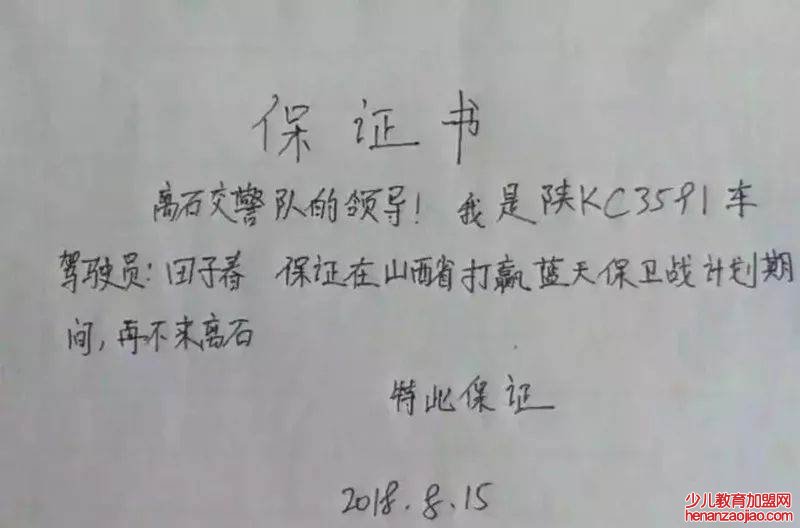 保证书
离石交警队的领导！我是陕KC3591车
驾驶员：田子春 保证在山西省打赢蓝天保卫战计划期
间，再不来离石
特此保证
2018.8.15
少儿教育加盟网
henanzaojiao.com